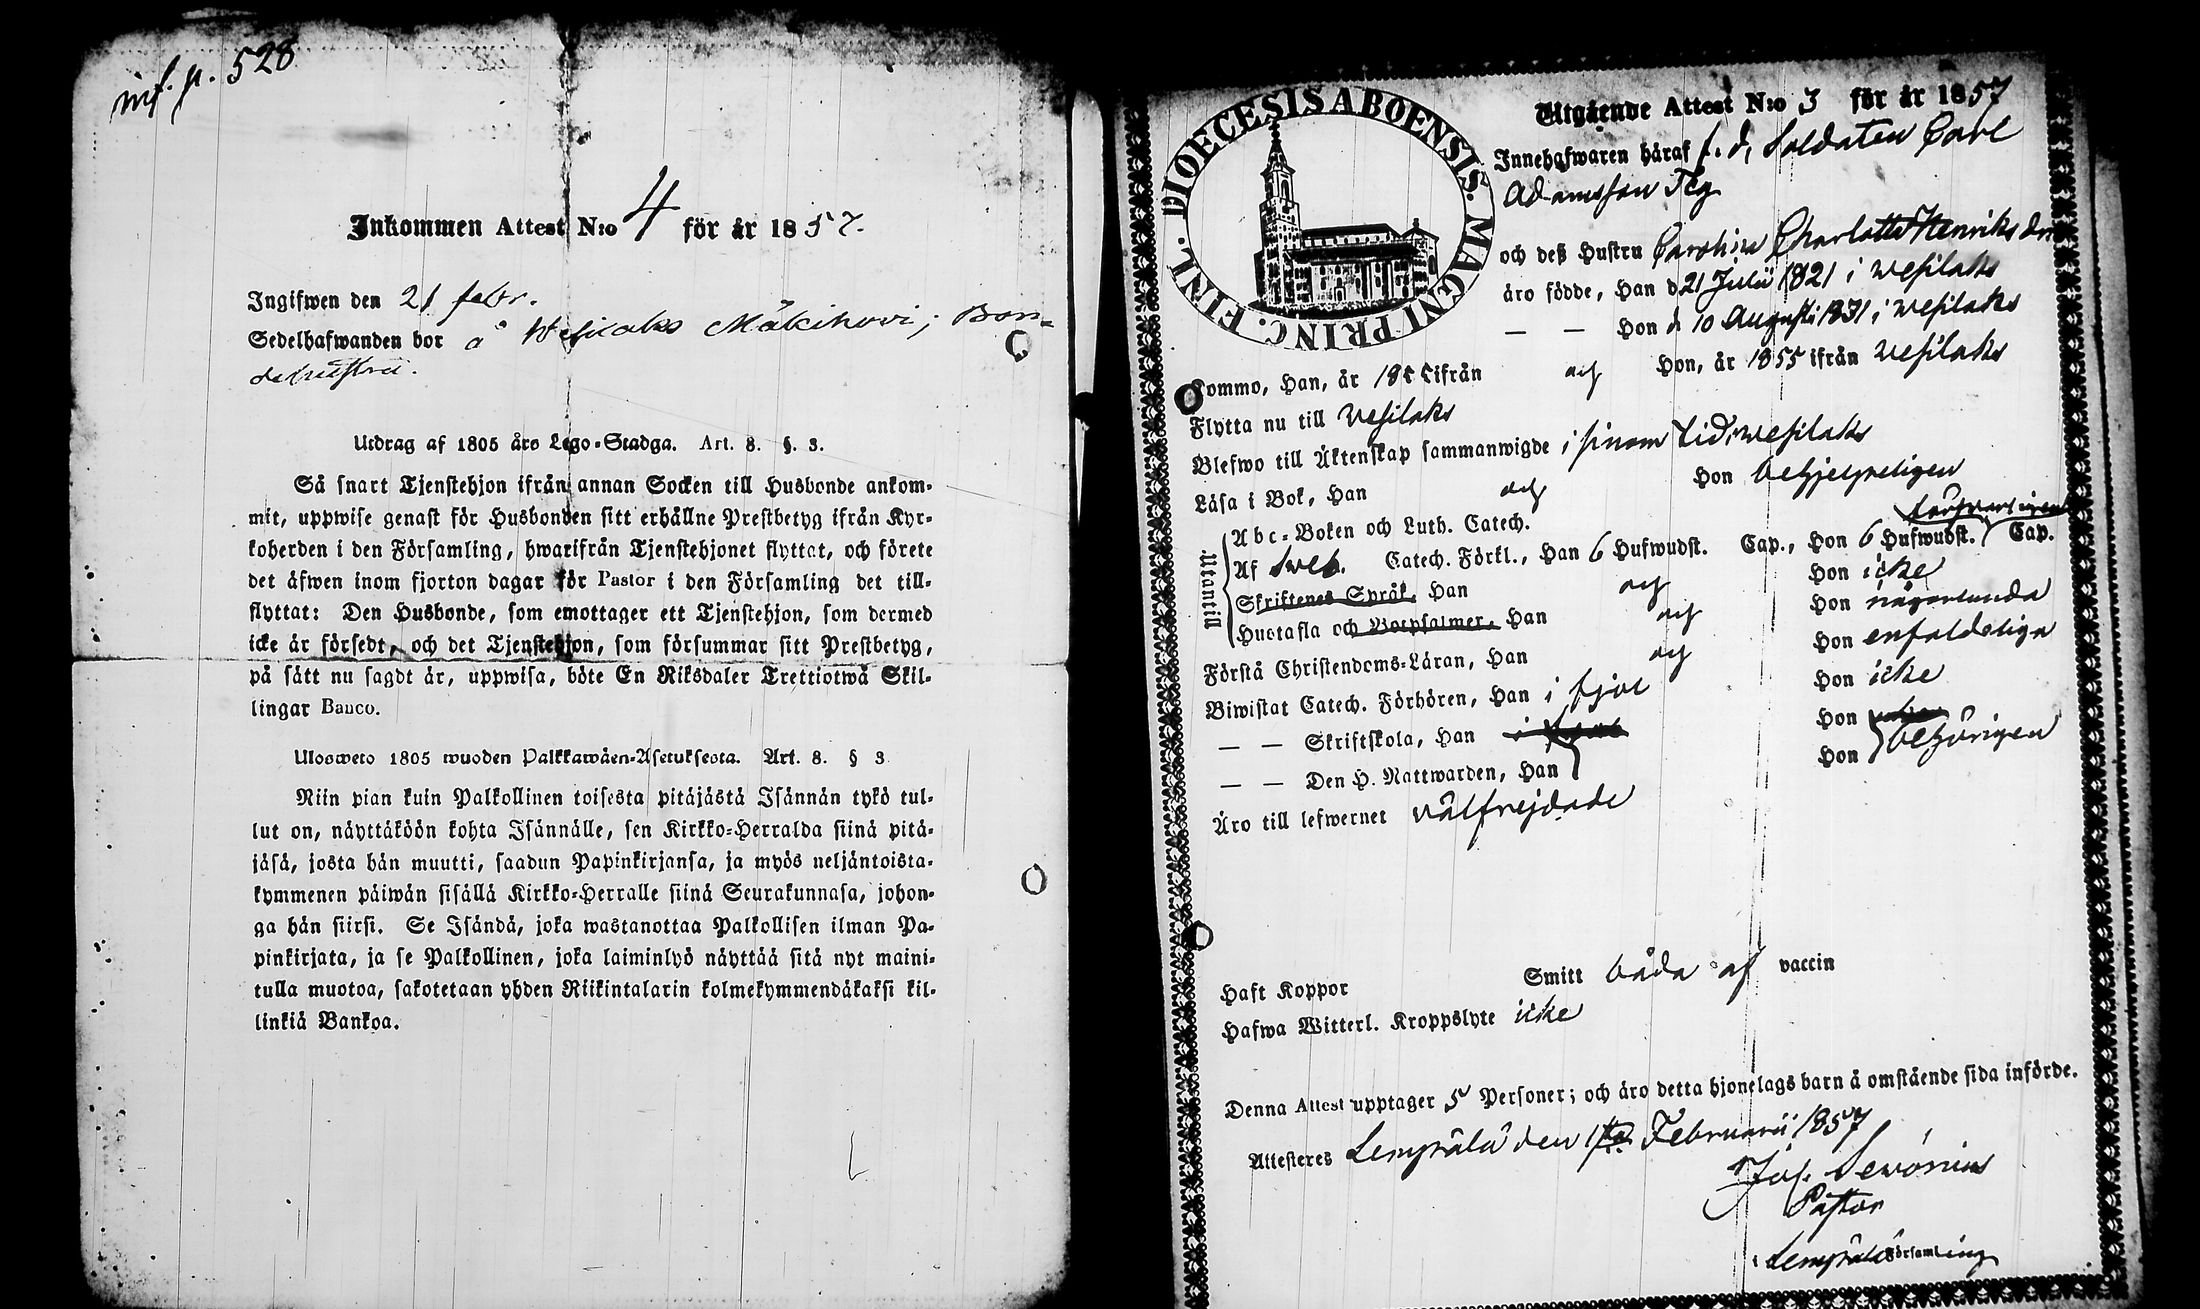 inf. p. 528
Inkommen Attest N:o 4 för år 1857.
Ingifwen den 21 febr.
Sedelhafwanden bor å Wesilaks Mäkihovi; Bon-
dehustru.
Utdrag af 1805 års Lego-Stadga. Art. 8. §. 3.
Så snart Tjenstehjon ifrån annan Socken till Husbonde ankom-
mit, uppwise genast för Husbonden sitt erhållne Prestbetyg ifrån Kyr-
koherden i den Församling, hwarifrån Tjenstehjonet flyttat, och förete
det äfwen inom fjorton dagar för Pastor i den Församling det till-
flyttat: Den Husbonde, som emottager ett Tjenstehjon, som dermed
icke är försedt, och det Tjenstehjon, som försummar sitt Prestbetyg,
på sätt nu sagdt är, uppwisa, böte En Riksdaler Trettiotwå Skil-
lingar Banco.
Ulosweto 1805 wuoden Palkkawäen-Asetuksesta. Art. 8. § 3
Niin pian kuin Palkollinen toisesta pitäjästä Isännän tykö tul-
lut on, näyttäköön kohta Isännälle, sen Kirkko-Herralda siinä pitä-
jäsä, josta hän muutti, saadun Papinkirjansa, ja myös neljäntoista-
kymmenen päiwän sisällä Kirkko-Herralle siinä Seurakunnasa, johon-
ga hän siirsi. Se Isändä, joka wastanottaa Palkollisen ilman Pa-
pinkirjata, ja se Palkollinen, joka laiminlyö näyttää sitä nyt maini-
tulla muotoa, sakotetaan yhden Riikintalarin kolmekymmendäkaksi kil-
linkiä Bankoa.
DIOECESIS ABOENSIS. MAGNI PRINC. FINL.
Utgående Attest N:o 3 för år 1857
Innehafwaren häraf f. d. Soldaten Carl
Adamsson Teg
och deß Hustru Carolina Charlotta Henriks dr
äro födde, Han d 21 Julii 1821 i Wesilaks
— — Hon d 10 Augusti 1831 i Wesilaks
Kommo, Han, år 1855 ifrån och Hon, år 1855 ifrån Wesilaks
Flytta nu till Wesilaks
Blefwo till Äktenskap sammanwigde i sinom tid i Wesilaks
Läsa i Bok, Han och Hon behjelpeligen
Utantill
Abc-Boken och Luth. Catech.
Af Sveb. Catech. Förkl., Han 6 Hufwudst. Cap., Hon 6 Hufwudst. Cap.
Skriftenes Språk, Han och Hon icke
Hustafla och Botpsalmer, Han och Hon någorlunda
Förstå Christendoms-Läran, Han och Hon enfaldeliga
Biwistat Catech. Förhören, Han i fjol Hon icke
— — Skriftskola, Han Hon
— — Den H. Nattwarden, Han Hon behörigen
Äro till lefwernet välfrejdade
Haft Koppor Smitt båda af vaccin
Hafwa Witterl. Kroppslyte icke
Denna Attest upptager 5 Personer; och äro detta hjonelags barn å omstående sida införde.
Attesteres Lempälä den 1sta Februarii 1857
Jos. Sevonius
Pastor
i Lempälä Församling